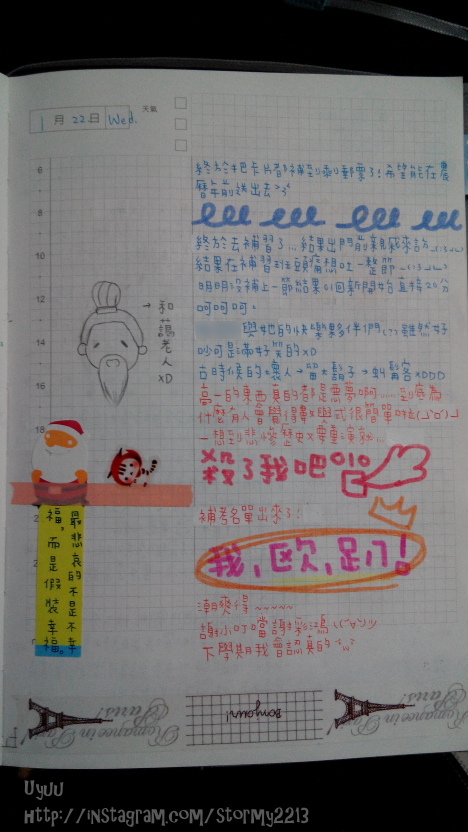 1月22日 Wed.
天氣
6
8
10
12
14
16
18
終於把卡片都補到(剩)郵票了!希望能在農
曆年前送出去>3<
終於去補習了...結果出門前親戚來訪
結果在補習班頭痛想吐一整節
明明沒補上一節結果以回新開始直接20分
呵呵呵。
與她的快樂夥伴們(??)雖然好
吵可是滿好笑的XD
古時候的壞人→留大鬍子→虯髯客XDDD
→和藹老人XD
高一的東西真的都是噩夢啊....到底為
什麼有人會覺得數與式很簡單啦
一想到悲慘歷史又要重演就...
殺了我吧
補考名單出來了!
我,歐,趴!
最悲哀的不是不幸
福,而是假裝幸福。
潮爽得~~~~~
謝小叮噹謝
下學期我會認真的
Romance in Paris!
Bonjour!
Romance in Paris!
Uyuu
http://instagram.com/stormy2213